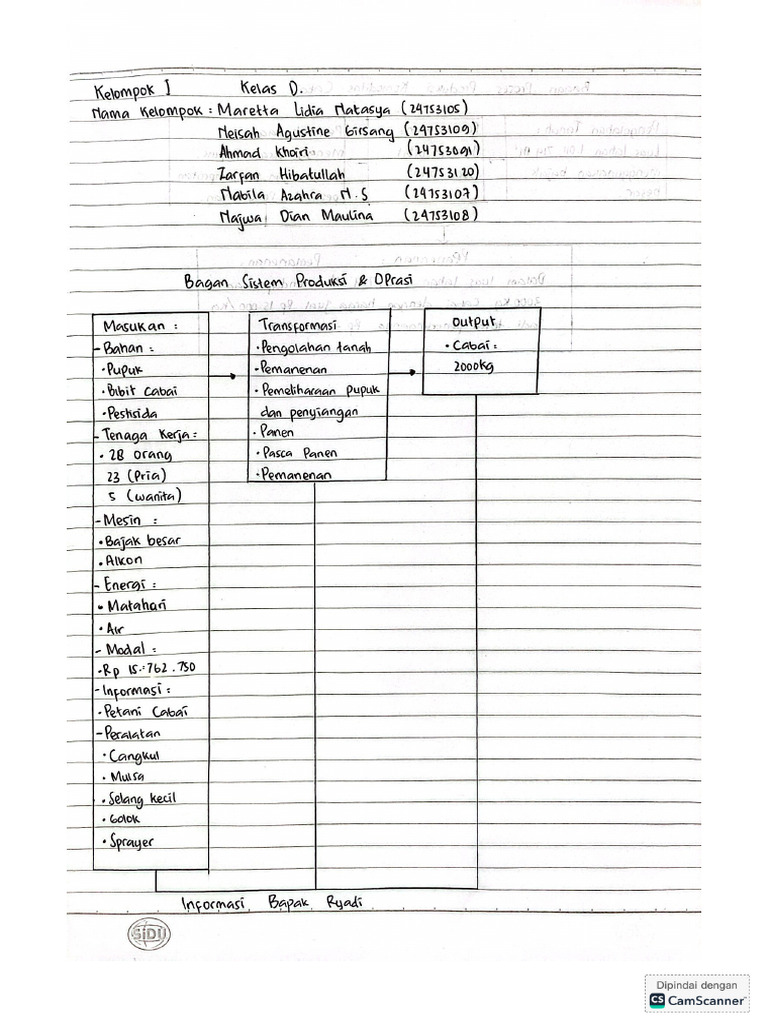 Kelompok I Kelas D.
Nama Kelompok : Maretta Lidia Natasya (24753105)
Neisah Agustine Girsang (24753109)
Ahmad Khoiri (24753091)
Zarfan Hibatullah (24753120)
Nabila Azahra N.S (24753107)
Najwa Dian Maulina (24753108)
Bagan Sistem Produksi & OPrasi
Masukan :
- Bahan :
• Pupuk
• Bibit Cabai
• Pestisida
- Tenaga Kerja :
• 28 orang
23 (Pria)
5 (wanita)
- Mesin :
• Bajak besar
• Alkon
- Energi :
• Matahari
• Air
- Modal :
• Rp 15.762.750
- Informasi :
• Petani Cabai
- Peralatan
• Cangkul
• Mulsa
• Selang kecil
• Golok
• Sprayer
Transformasi
• Pengolahan tanah
• Pemanenan
• Pemeliharaan pupuk
dan penyiangan
• Panen
• Pasca Panen
• Pemanenan
Output :
• Cabai :
2000kg
Informasi Bapak Ryadi
SIDU
Dipindai dengan
CS CamScanner